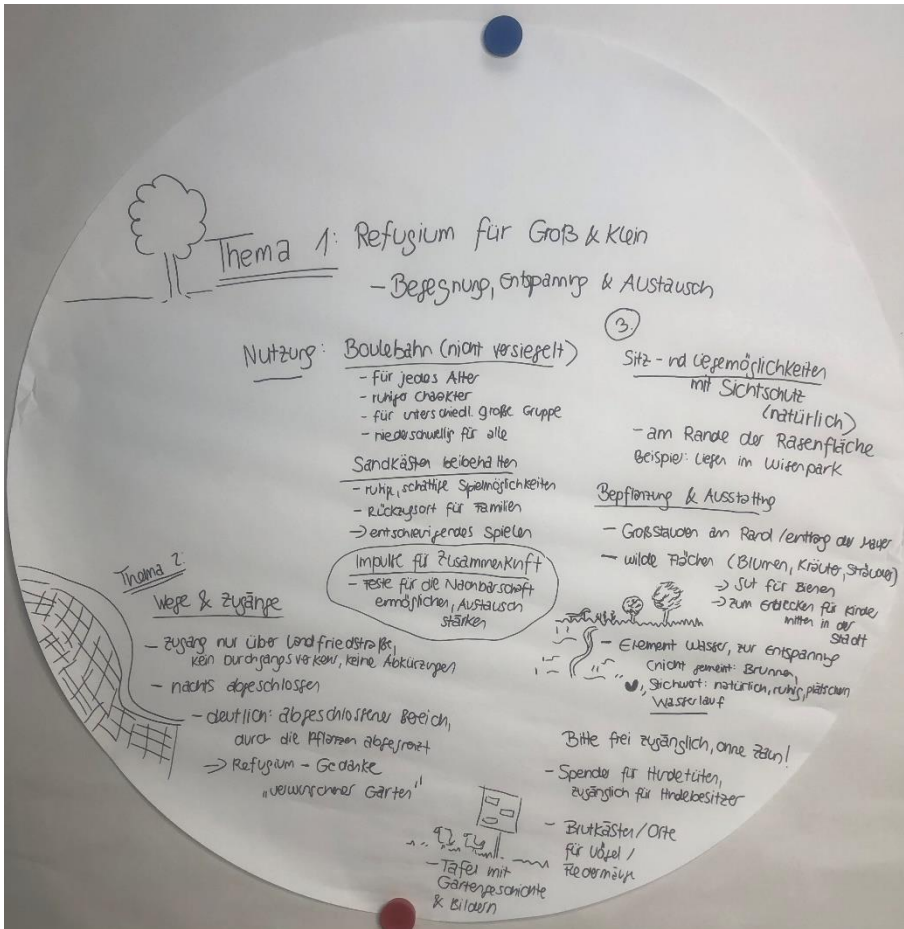 Thema 1: Refugium für Groß & Klein
- Begegnung, Entspannung & Austausch
Nutzung: Boulebahn (nicht versiegelt)
- für jedes Alter
- ruhiger Charakter
- für unterschiedl. große Gruppe
- niederschwellig für alle
Sandkästen beibehalten
- ruhige, schattige Spielmöglichkeiten
- Rückzugsort für Familien
→ entschleunigendes Spielen
Impulse für Zusammenkunft
- Feste für die Nachbarschaft
ermöglichen, Austausch
stärken
3.
Sitz- und Liegemöglichkeiten
mit Sichtschutz
(natürlich)
- am Rande der Rasenfläche
Beispiel: Liegen im Wiesenpark
Bepflanzung & Ausstattung
- Großstauden am Rand / entlang der Mauer
- wilde Flächen (Blumen, Kräuter, Sträucher)
→ gut für Bienen
→ zum Entdecken für Kinder
mitten in der
Stadt
- Element Wasser, zur Entspannung
(nicht gemeint: Brunnen,
Stichwort: natürlich, ruhig, plätschern
Wasserlauf
Bitte frei zugänglich, ohne Zaun!
- Spender für Hundetüten,
zugänglich für Hundebesitzer
- Brutkästen / Orte
für Vögel /
Fledermäuse
- Tafel mit
Gartengeschichte
& Bildern
Thema 2:
Wege & Zugänge
- Zugang nur über Landfriedstraße,
kein Durchgangsverkehr, keine Abkürzungen
- nachts abgeschlossen
- deutlich: abgeschlossener Bereich,
durch die Pflanzen abgegrenzt
→ Refugium - Gedanke
"verwunschener Garten"